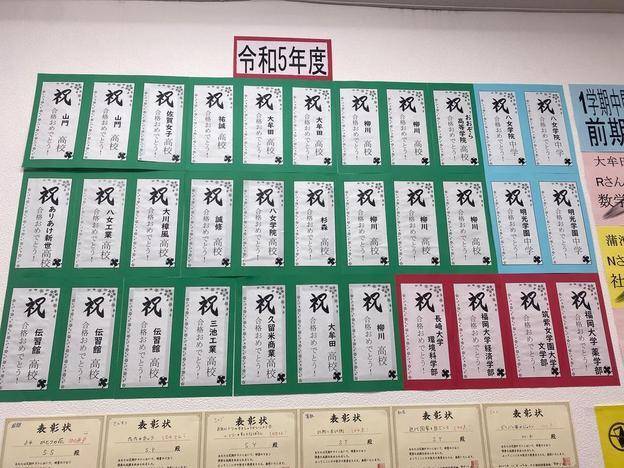 令和5年度
祝 山門 高校 合格おめでとう！
祝 山門 高校 合格おめでとう！
祝 佐賀女子 高校 合格おめでとう！
祝 祐誠 高校 合格おめでとう！
祝 大牟田 高校 合格おめでとう！
祝 大牟田 高校 合格おめでとう！
祝 柳川 高校 合格おめでとう！
祝 柳川 高校 合格おめでとう！
祝 おおぞら 高等学院 高校 合格おめでとう！
祝 八女学院 中学 合格おめでとう！
祝 八女学院 中学 合格おめでとう！
祝 ありあけ新世 高校 合格おめでとう！
祝 八女工業 高校 合格おめでとう！
祝 大川樟風 高校 合格おめでとう！
祝 誠修 高校 合格おめでとう！
祝 八女学院 高校 合格おめでとう！
祝 杉森 高校 合格おめでとう！
祝 柳川 高校 合格おめでとう！
祝 柳川 高校 合格おめでとう！
祝 柳川 高校 合格おめでとう！
祝 明光学園 中学 合格おめでとう！
祝 明光学園 中学 合格おめでとう！
祝 伝習館 高校 合格おめでとう！
祝 伝習館 高校 合格おめでとう！
祝 伝習館 高校 合格おめでとう！
祝 三池工業 高校 合格おめでとう！
祝 久留米商業 高校 合格おめでとう！
祝 大牟田 高校 合格おめでとう！
祝 柳川 高校 合格おめでとう！
祝 長崎大学 環境科学部 合格おめでとう！
祝 福岡大学 経済学部 合格おめでとう！
祝 筑紫女学園大学 文学部 合格おめでとう！
祝 福岡大学 薬学部 合格おめでとう！
1学期中間
前期
大牟田
Rさん
数学
蒲池
Nさん
社
表彰状
S S 殿
表彰状
殿
表彰状
S Y 殿
表彰状
殿
表彰状
S Y 殿
表彰状
殿